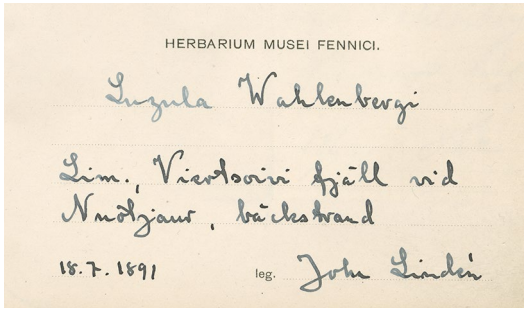 HERBARIUM MUSEI FENNICI.
Luzula Wahlenbergi
Lim., Viertsoivi fjäll vid
Nuotjaur, bäckstrand
18.7.1891 leg. John Lindén